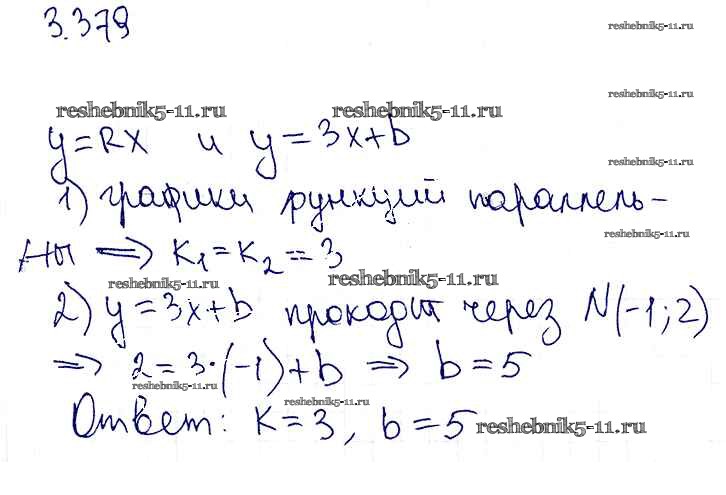 3.379
reshebnik5-11.ru
reshebnik5-11.ru
reshebnik5-11.ru reshebnik5-11.ru
y=kx и y=3x+b
reshebnik5-11.ru
1) графики функций параллель-
reshebnik5-11.ru
ны => K₁=K₂=3
reshebnik5-11.ru reshebnik5-11.ru
2) y=3x+b проходит через N(-1;2)
=> 2=3·(-1)+b => b=5
reshebnik5-11.ru
reshebnik5-11.ru
Ответ: K=3, b=5 reshebnik5-11.ru